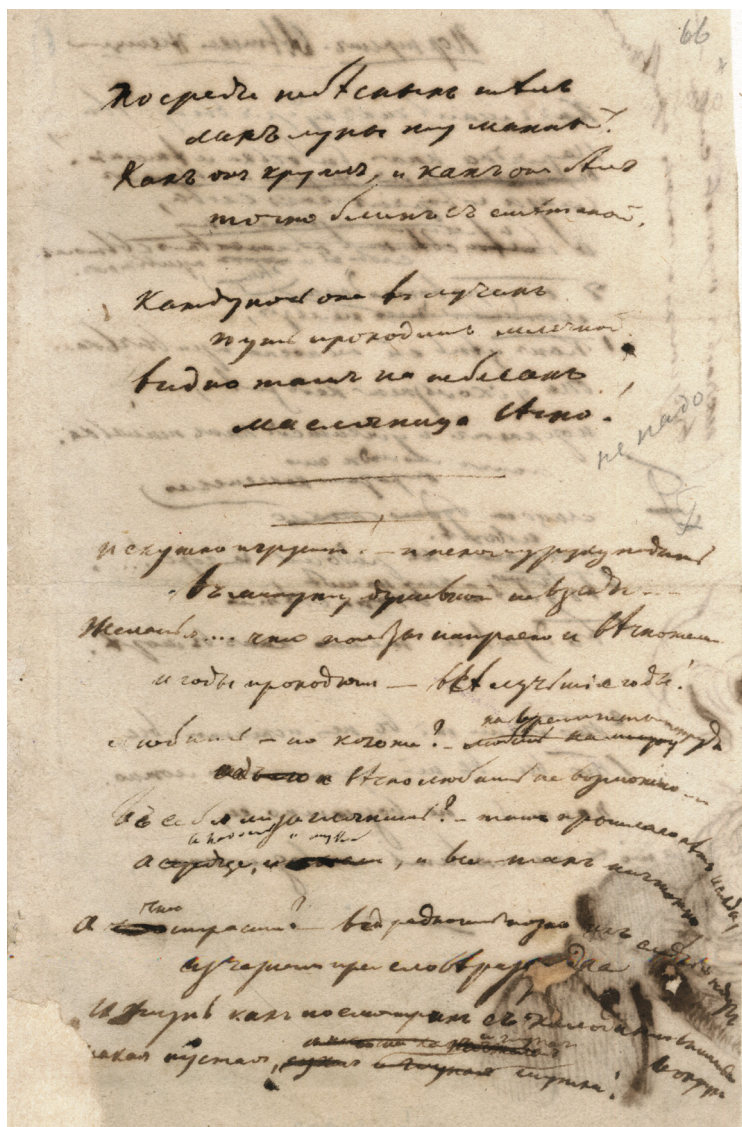 66
Посреди небѣсныхъ тѣлъ
ликъ луны туманный.
Какъ онъ круглъ, и какъ онъ бѣлъ
точно блинъ съ сметаной.
Каждуночь она в лучахъ
путь проходитъ млечной.
видно тамъ на небесахъ
масляница вѣчно!
не надо
и скучно и грустно! — и некому руку подать
въ минуту душевной невзгоды —
Желанья... что пользы напрасно и вѣчно желать
и годы проходятъ — всѣ лучшіе годы!
любить — но кого же? —
на время не стоитъ труда
вѣчно любить не возможно —
Въ себя ли заглянешь? — тамъ прошлаго нѣтъ и слѣда,
и радость и муки
А сердце, и все тамъ ничтожно
что
А страсти? — вѣдь рано иль поздно ихъ сладкій недугъ
изчезнетъ при словѣ разсудка
И жизнь какъ посмотришь съ холоднымъ вниманьемъ вокругъ
такая пустая, и глупая шутка!